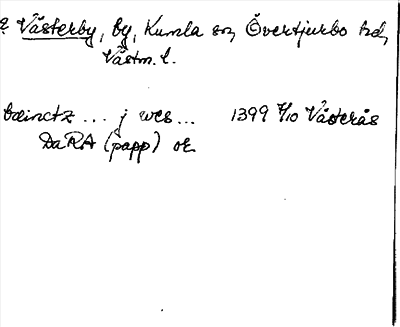 ? Västerby, by, Kumla sn, Övertjurbo hd,
Västm. l.
bæinctz ... j wes ... 1399 8/10 Västerås
DaRA (papp) or